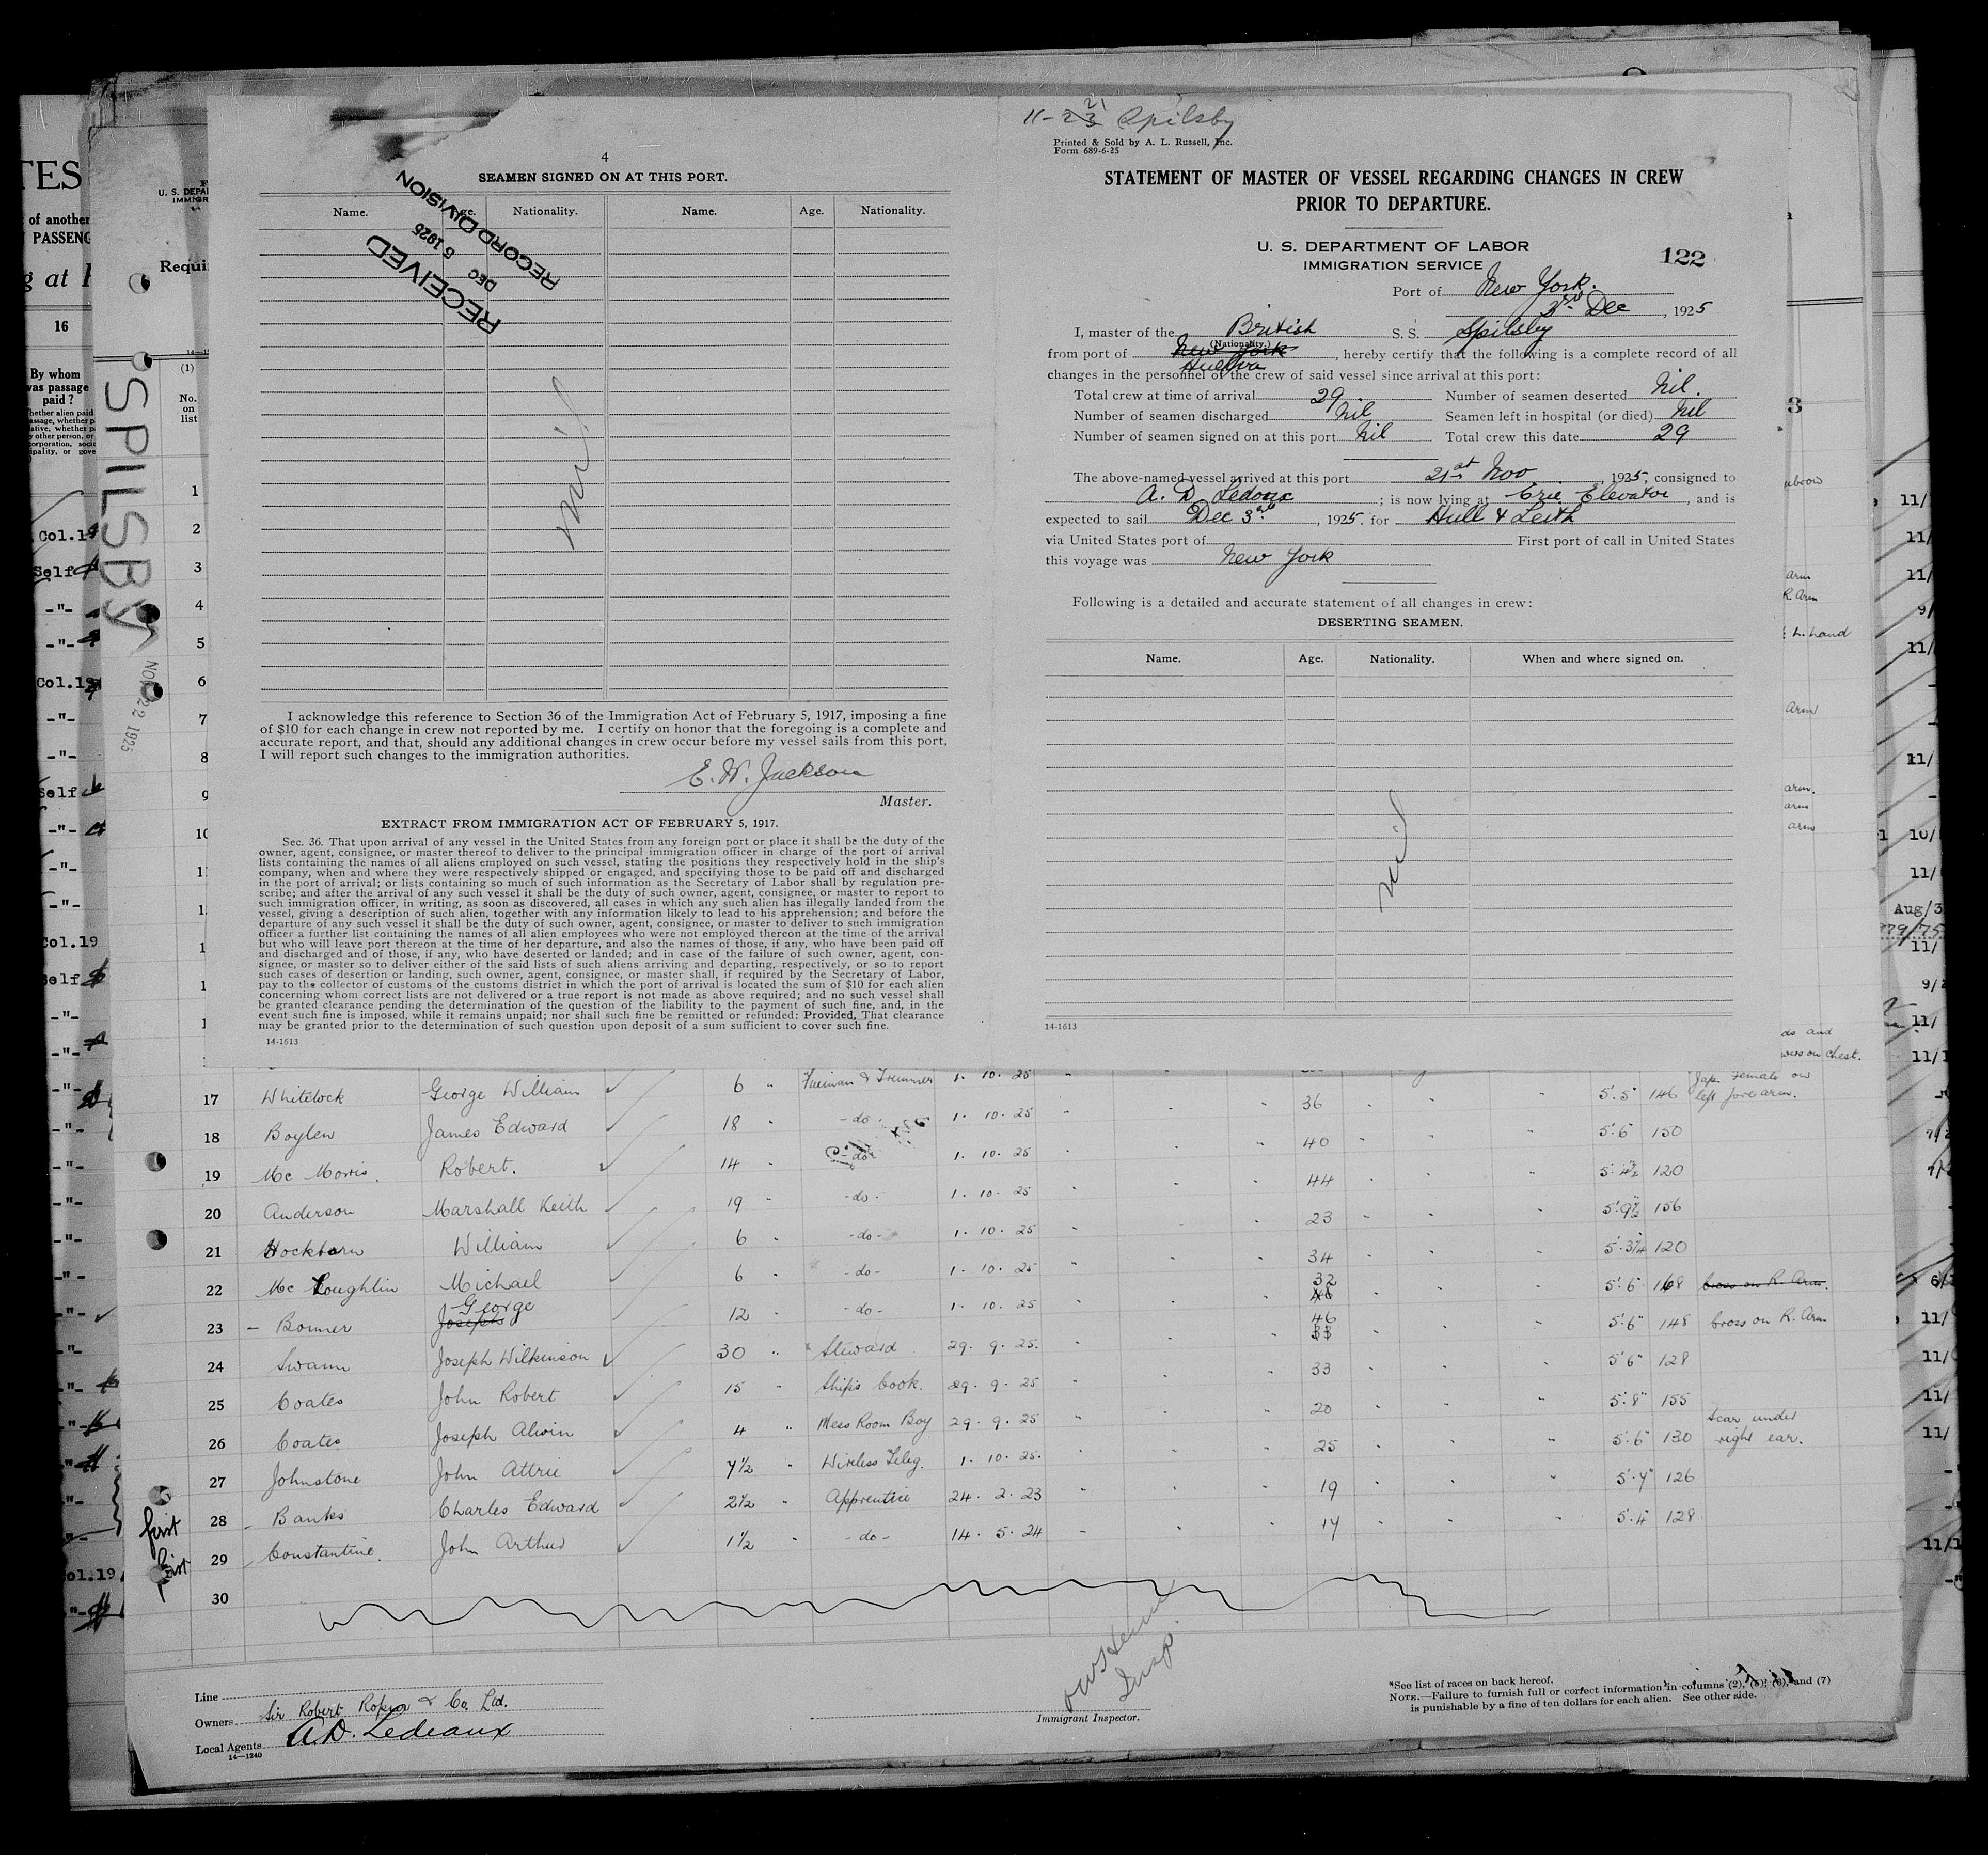 4
SEAMEN SIGNED ON AT THIS PORT.
Name. Age. Nationality. Name. Age. Nationality.
RECEIVED
DEC 5 1925
RECORD DIVISION
nil
I acknowledge this reference to Section 36 of the Immigration Act of February 5, 1917, imposing a fine
of $10 for each change in crew not reported by me. I certify on honor that the foregoing is a complete and
accurate report, and that, should any additional changes in crew occur before my vessel sails from this port,
I will report such changes to the immigration authorities.
E. W. Jackson
Master.
EXTRACT FROM IMMIGRATION ACT OF FEBRUARY 5, 1917.
Sec. 36. That upon arrival of any vessel in the United States from any foreign port or place it shall be the duty of the
owner, agent, consignee, or master thereof to deliver to the principal immigration officer in charge of the port of arrival
lists containing the names of all aliens employed on such vessel, stating the positions they respectively hold in the ship's
company, when and where they were respectively shipped or engaged, and specifying those to be paid off and discharged
in the port of arrival; or lists containing so much of such information as the Secretary of Labor shall by regulation pre-
scribe; and after the arrival of any such vessel it shall be the duty of such owner, agent, consignee, or master to report to
such immigration officer, in writing, as soon as discovered, all cases in which any such alien has illegally landed from the
vessel, giving a description of such alien, together with any information likely to lead to his apprehension; and before the
departure of any such vessel it shall be the duty of such owner, agent, consignee, or master to deliver to such immigration
officer a further list containing the names of all alien employees who were not employed thereon at the time of the arrival
but who will leave port thereon at the time of her departure, and also the names of those, if any, who have been paid off
and discharged and of those, if any, who have deserted or landed; and in case of the failure of such owner, agent, con-
signee, or master so to deliver either of the said lists of such aliens arriving and departing, respectively, or so to report
such cases of desertion or landing, such owner, agent, consignee, or master shall, if required by the Secretary of Labor,
pay to the collector of customs of the customs district in which the port of arrival is located the sum of $10 for each alien
concerning whom correct lists are not delivered or a true report is not made as above required; and no such vessel shall
be granted clearance pending the determination of the question of the liability to the payment of such fine, and, in the
event such fine is imposed, while it remains unpaid; nor shall such fine be remitted or refunded: Provided, That clearance
may be granted prior to the determination of such question upon deposit of a sum sufficient to cover such fine.
14-1613
11-23 21 Spilsby
Printed & Sold by A. L. Russell, Inc.
Form 689-6-25
STATEMENT OF MASTER OF VESSEL REGARDING CHANGES IN CREW
PRIOR TO DEPARTURE.
U. S. DEPARTMENT OF LABOR
IMMIGRATION SERVICE
122
Port of New York.
3rd Dec, 1925
I, master of the British S. S. Spilsby
(Nationality.)
from port of New York Huelva, hereby certify that the following is a complete record of all
changes in the personnel of the crew of said vessel since arrival at this port:
Total crew at time of arrival 29. Number of seamen deserted Nil.
Number of seamen discharged Nil Seamen left in hospital (or died) Nil
Number of seamen signed on at this port Nil Total crew this date 29
The above-named vessel arrived at this port 21st Nov, 1925, consigned to
A. D. Ledoux; is now lying at Erie Elevator, and is
expected to sail Dec 3rd, 1925. for Hull & Leith
via United States port of First port of call in United States
this voyage was New York
Following is a detailed and accurate statement of all changes in crew:
DESERTING SEAMEN.
Name. Age. Nationality. When and where signed on.
nil
14-1613
SPILSBY
NOV 22 1925
(1)
No.
on
list
1
2
3
4
5
6
7
8
9
16
By whom
was passage
paid?
17 Whitelock George William 6 " Fireman & Trimmer 1. 10. 25 36 5'.5" 146 Jap. Female on left fore arm.
18 Boylen James Edward 18 " -do- 1. 10. 25 40 5'.6" 150
19 Mc Morris. Robert. 14 " -do- 1. 10. 25 44 5'.4½ 120
20 Anderson Marshall Keith 19 " -do- 1. 10. 25 23 5'.9½ 156
21 Hockborn William 6 " -do- 1. 10. 25 34 5'.3¼ 120
22 Mc Loughlin Michael 6 " -do- 1. 10. 25 32 5'.6" 168 Cross on R. Arm.
23 - Bonner Joseph George 12 " -do- 1. 10. 25 46 5'.6" 148 Cross on R. Arm
24 Swann Joseph Wilkinson 30 " Steward 29. 9. 25. 33 5'6" 128
25 Coates John Robert 15 " Ships Cook. 29. 9. 25 20 5'.8" 155
26 Coates Joseph Alwin 4 " Mess Room Boy 29. 9. 25 25 5'.6" 130 Scar under right ear.
27 Johnstone John Attrie 7½ " Wireless Teleg. 1. 10. 25. 19 5'.7" 126
28 Banks Charles Edward 2½ " Apprentice 24. 2. 23 17 5'.4" 128
29 Constantine. John Arthur 1½ " -do- 14. 5. 24
30
first
first
Line
Owners Sir Robert Ropner & Co. Ltd.
Local Agents A.D. Ledeaux
14-1240
Insp.
Immigrant Inspector.
*See list of races on back hereof.
NOTE.—Failure to furnish full or correct information in columns (2), (5), (6), and (7)
is punishable by a fine of ten dollars for each alien. See other side.